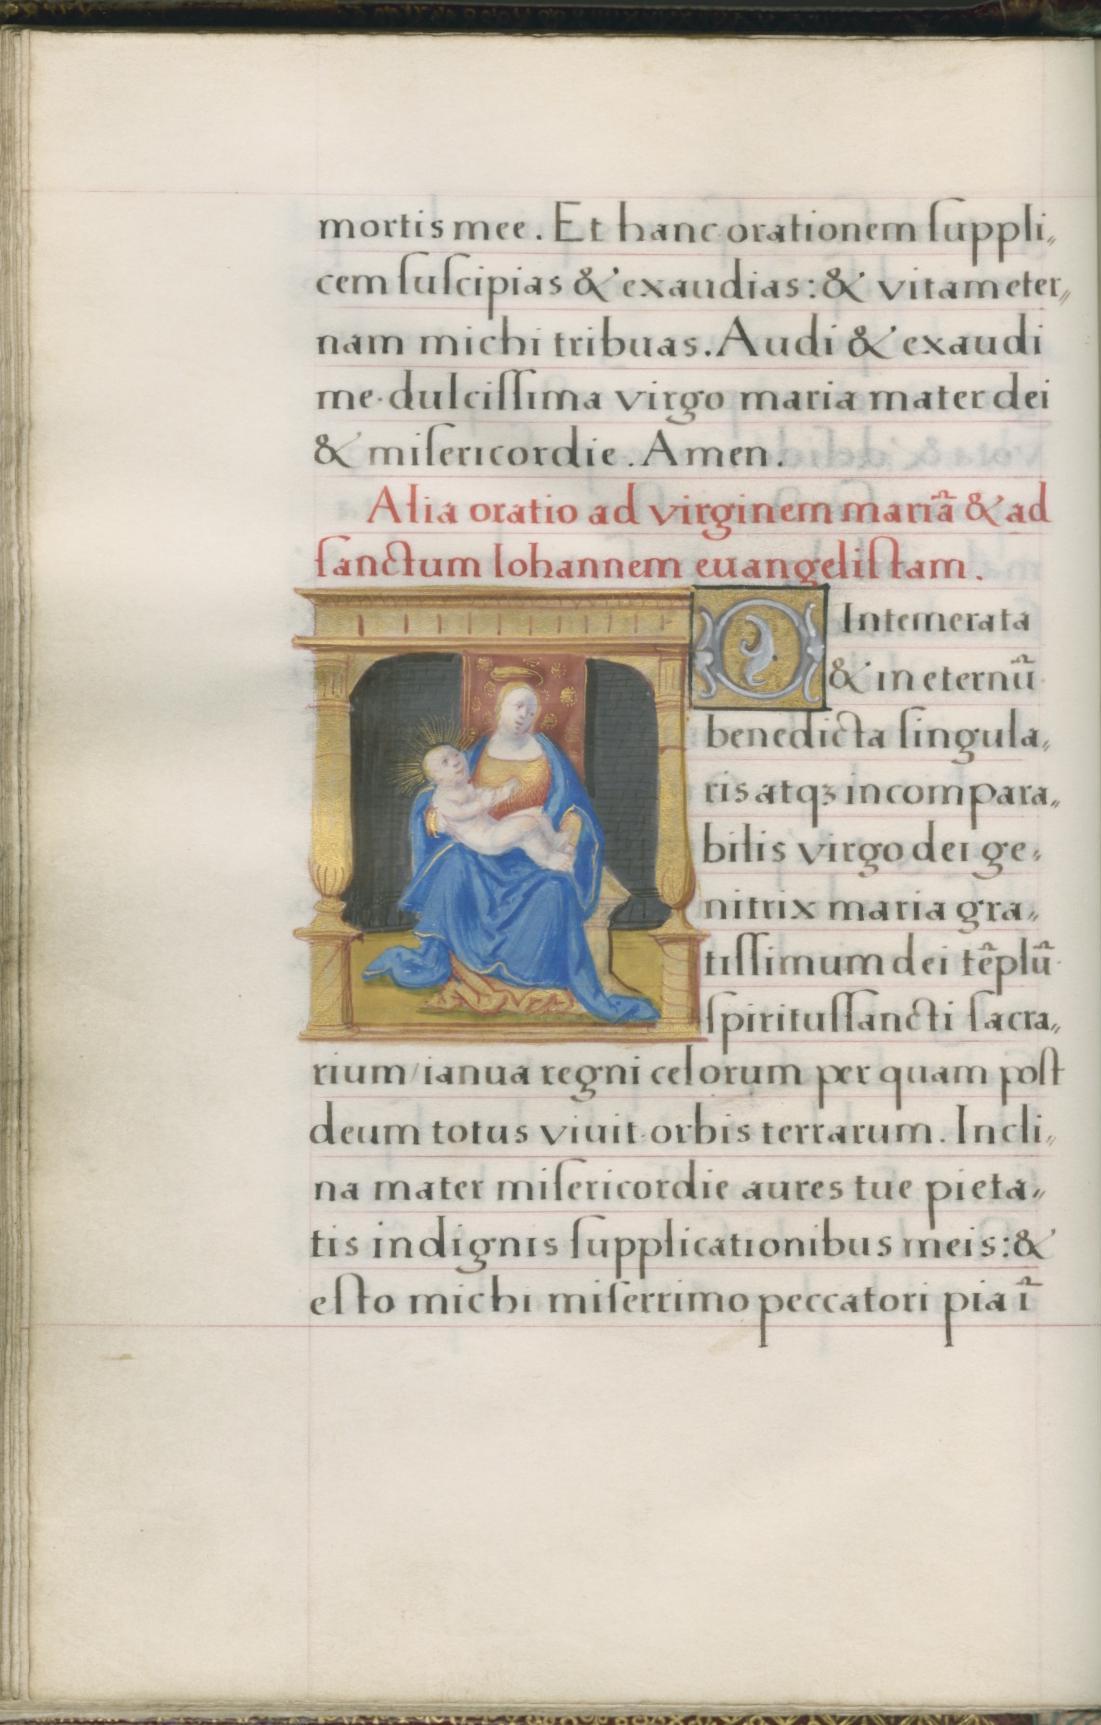 mortis mee. Et hanc orationem ſuppli〃
cem ſuſcipias & exaudias: & vitam eter〃
nam michi tribuas. Audi & exaudi
me dulciſſima virgo maria mater dei
& miſericordie. Amen.
Alia oratio ad virginem mariā & ad
ſanctum Iohannem euangeliſtam.
O Intemerata
& in eternū
benedicta ſingula〃
ris atqꝫ incompara〃
bilis virgo dei ge〃
nitrix maria gra〃
tiſſimum dei tēplū
ſpirituſſancti ſacra〃
rium/ianua regni celorum per quam poſt
deum totus viuit orbis terrarum. Incli〃
na mater miſericordie aures tue pieta〃
tis indignis ſupplicationibus meis: &
eſto michi miſerrimo peccatori pia ī